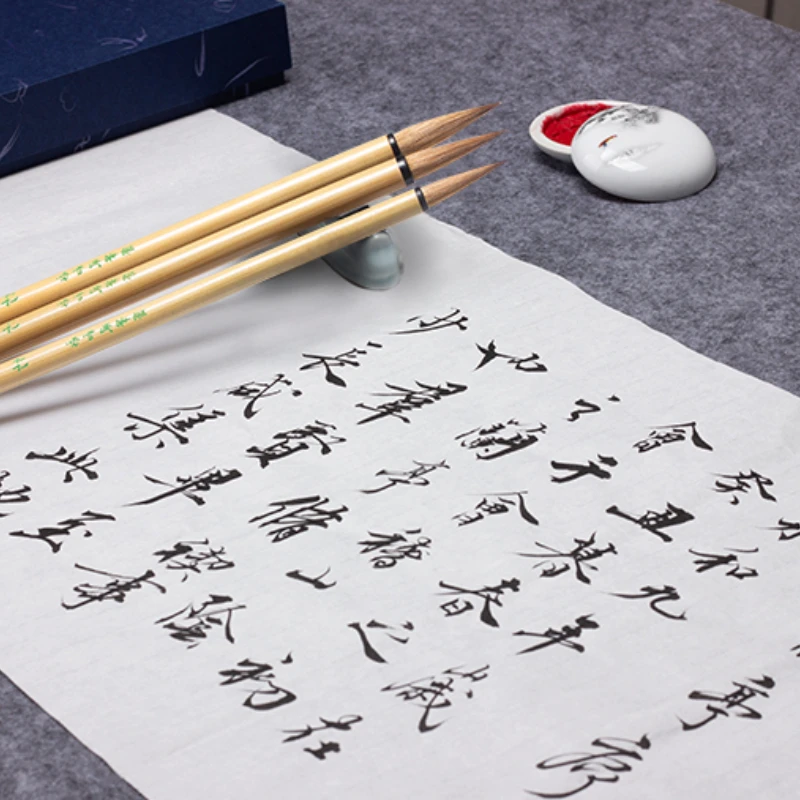 亭序
和九年歲在
癸丑暮春之初
會于會稽山陰
之蘭亭脩禊事
也群賢畢至
少長咸集此